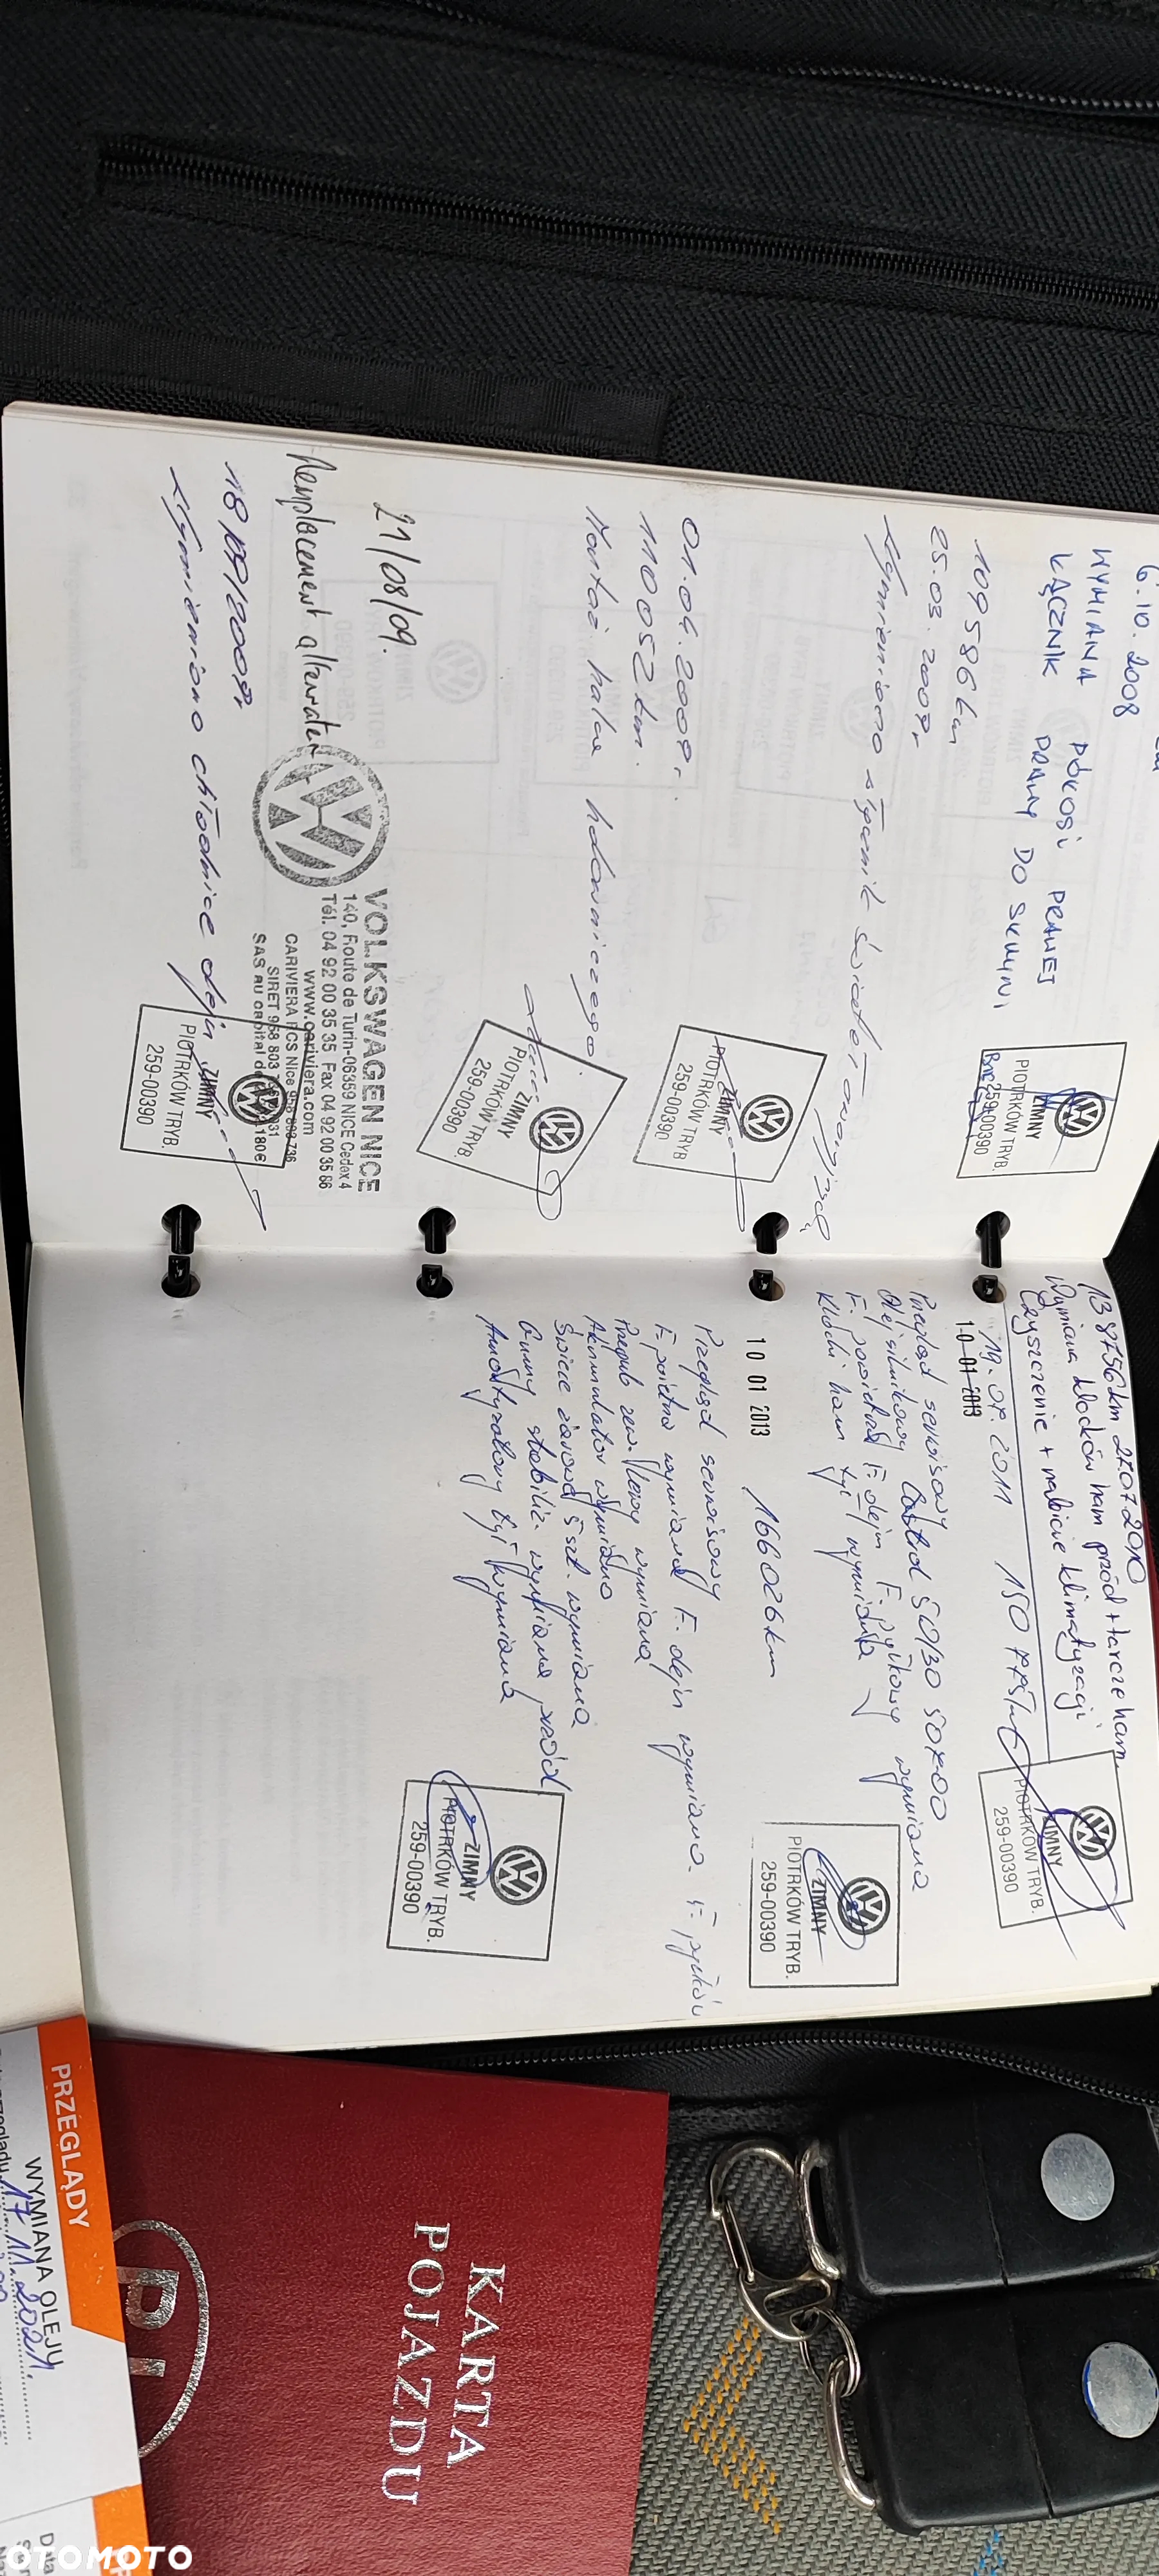 6.10.2008
WYMIANA PÓŁOSI PRAWEJ
ŁĄCZNIK PRAWY DO SKRZYNI
ZIMNY
PIOTRKÓW TRYB.
259-00390
109586 km
25.03.2009r
Wymieniono słącznik świateł awaryjnych
ZIMNY
PIOTRKÓW TRYB.
259-00390
01.04.2009r.
110052 km.
Montaż haka holowniczego
ZIMNY
PIOTRKÓW TRYB.
259-00390
21/08/09.
Remplacement alternateur
VOLKSWAGEN NICE
140, Route de Turin-06359 NICE Cedex 4
Tél. 04 92 00 35 35 Fax 04 92 00 35 86
www.cariviera.com
CARIVIERA RCS Nice 958 803 736
SIRET 958 803
SAS au capital de 180€
18/09/2009r
Wymieniono chłodnice oleju
ZIMNY
PIOTRKÓW TRYB.
259-00390
138756 km 27.07.2010
Wymiana klocków ham przód + tarcze ham.
Czyszczenie + nabicie klimatyzacji
ZIMNY
PIOTRKÓW TRYB.
259-00390
10 01 2013
19.07.2011
Przegląd serwisowy
Olej silnikowy Castrol 5W30 50700
F. powietrza F. oleju F. pyłkowy wymiana
Klocki ham tył wymiana
ZIMNY
PIOTRKÓW TRYB.
259-00390
10 01 2013 166026 km
Przegląd serwisowy
F. powietrza wymiana F. oleju wymiana F. pyłków
wymiana
Akumulator wymiano
Świece żarowe 5 szt. wymiana
Gumy stabiliz. wymiana przód
Amortyzatory tył wymiana
ZIMNY
PIOTRKÓW TRYB.
259-00390
PRZEGLĄDY
WYMIANA OLEJU
17.11.2021r.
KARTA
POJAZDU
PL
OTOMOTO